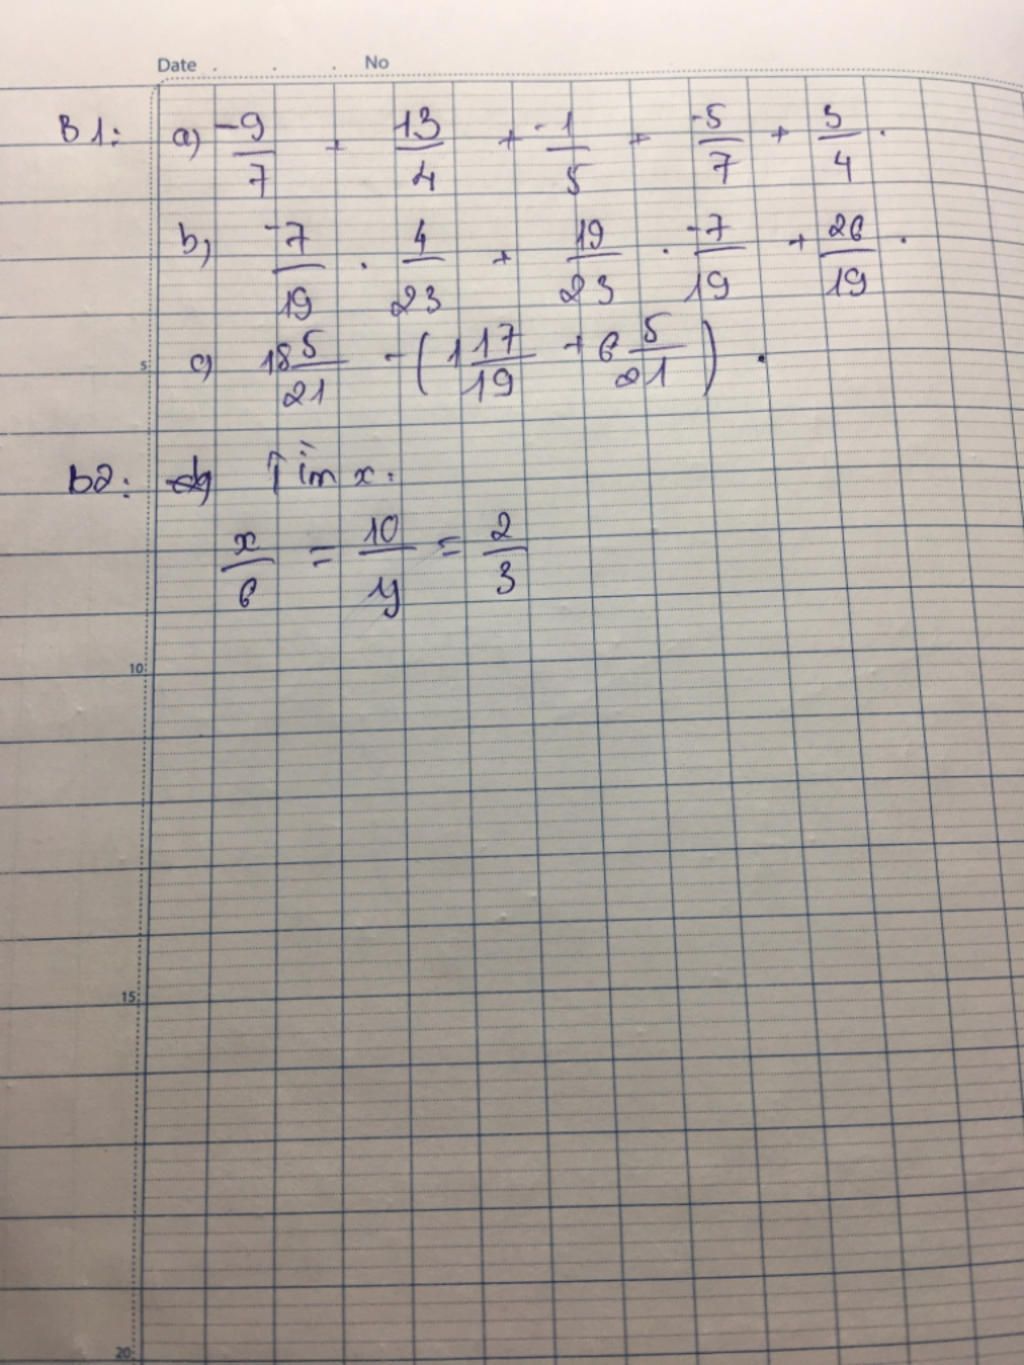 Date . . . No
B1: a) -9/7 + 13/4 + -1/5 + -5/7 + 3/4 .
b) -7/19 . 4/23 + 19/23 . -7/19 + 26/19 .
5 c) 18 5/21 - (1 17/19 + 6 5/21) .
b2: Tìm x.
x/6 = 10/y = 2/3
10
15
20